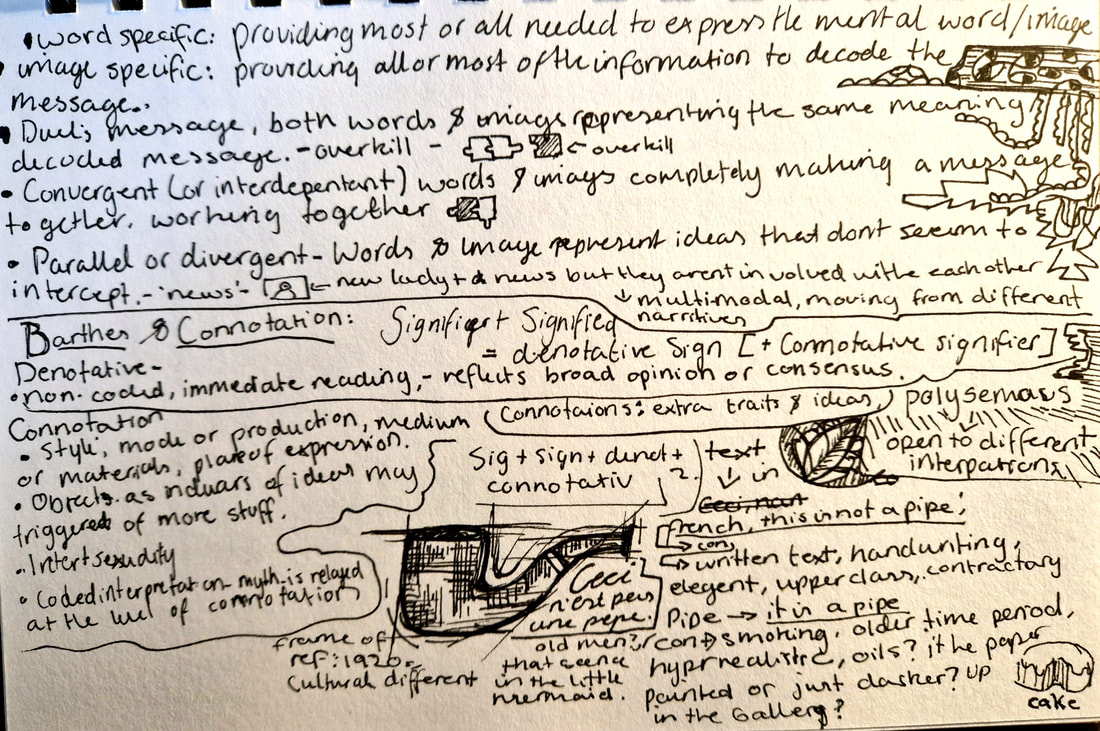 • word specific: providing most or all needed to express the mental word/image
• image specific: providing all or most of the information to decode the
message..
• Duel; message, both words & images representing the same meaning
decoded message. - overkill - ← overkill
• Convergent (or interdependant) words & images completely making a message
together. working together
• Parallel or divergent - Words & Image represent ideas that dont seem to
intercept. - 'news' - ← new lady + a news but they arent involved with eachother
↓ multimodal, moving from different
narritives
Barthes & Connotation: Signifier + Signified
= denotative Sign [+ Connotative signifier]
Denotative -
• non-coded, immediate reading, - reflects broad opinion or consensus.
Connotation
• Style, mode or production, medium
or materials, plane of expression.
• Objects as of ideas may
triggered of more stuff.
• Intertextuality
• Coded interpretation - myth is relayed
at the level of connotation
Connotaions: extra traits & ideas,
polysemous
open to different
Sig + sign + denot +
connotativ 2.
text
↓ in
french, 'this is not a pipe'
→ con,
written text, handwriting,
elegent, upperclass, contractary
Ceci
n'est pas
une pepe.
Pipe → it is a pipe
con → smoking, older time period,
hyprrealistic, oils? if the paper
painted or just darker? up
in the Gallery?
old men?
that scence
in the little
mermaid.
frame of
ref: 1920.
Cultural different
cake